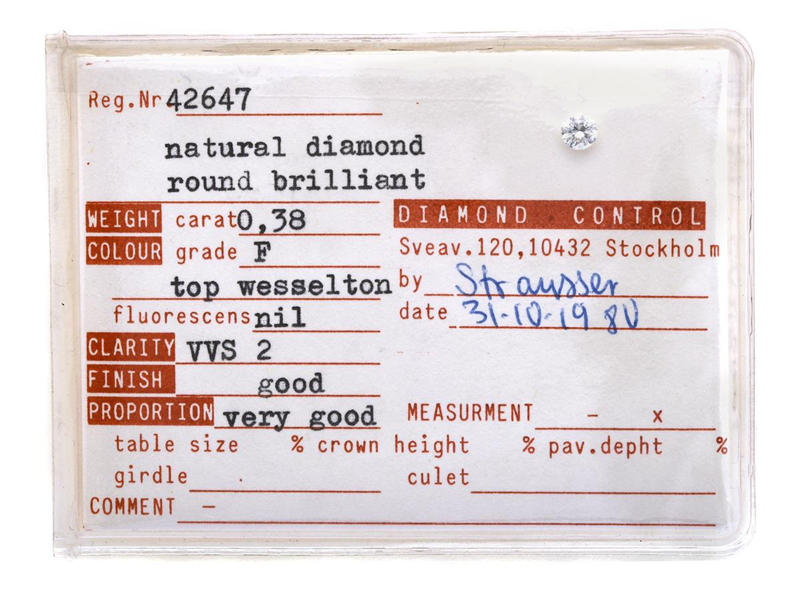 Reg.Nr 42647
natural diamond
round brilliant
WEIGHT carat 0,38
DIAMOND CONTROL
COLOUR grade F
Sveav.120,10432 Stockholm
top wesselton
by Strausser
fluorescens nil
date 31-10-1980
CLARITY VVS 2
FINISH good
PROPORTION very good
MEASURMENT - x
table size % crown height % pav.depht %
girdle culet
COMMENT -